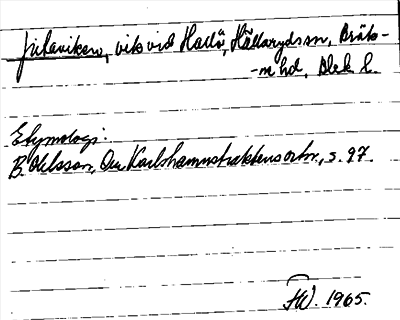 vik vid Harö, Hällaryds sn, Bräk-
-ne hd, Blek l.
Etymologi:
B. Ohlsson, Om Karlshamnstraktens ortn., s. 97.
FW. 1965.